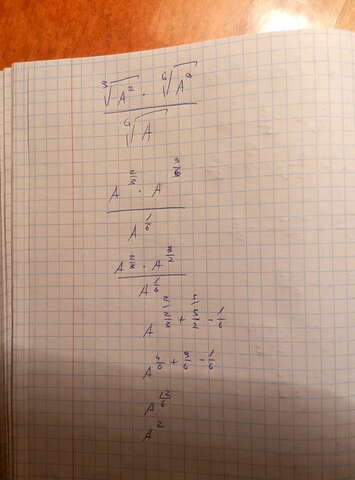 ∛A² · ⁶√A⁹ / ⁶√A
A^(2/3) · A^(9/6) / A^(1/6)
A^(2/3) · A^(3/2) / A^(1/6)
A^(2/3 + 3/2 - 1/6)
A^(4/6 + 9/6 - 1/6)
A^(12/6)
A^2